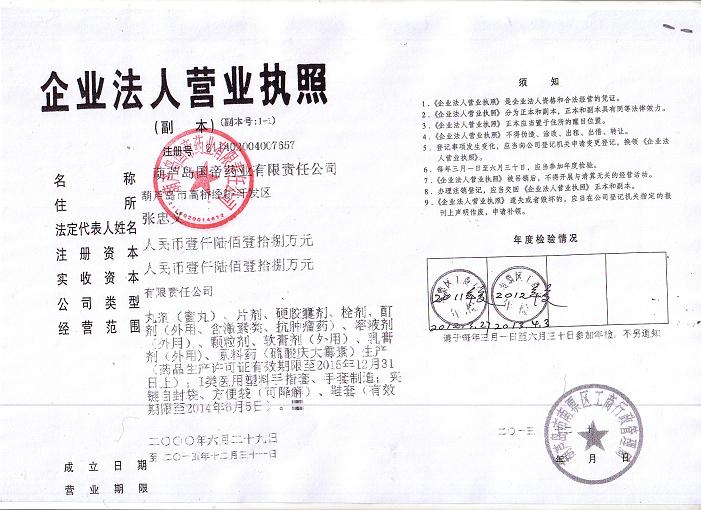 企业法人营业执照
(副 本)(副本号:1-1)
注册号 211403004007657
名 称 葫芦岛国帝药业有限责任公司
住 所 葫芦岛市高桥经济开发区
法定代表人姓名 张忠
注 册 资 本 人民币壹仟陆佰壹拾捌万元
实 收 资 本 人民币壹仟陆佰壹拾捌万元
公 司 类 型 有限责任公司
经 营 范 围 丸剂(蜜丸)、片剂、硬胶囊剂、栓剂、酊
剂(外用、含激素类、抗肿瘤药)、溶液剂
(外用)、颗粒剂、软膏剂(外用)、乳膏
剂(外用)、原料药(硫酸庆大霉素)生产
(药品生产许可证有效期限至2015年12月31
日止);I类医用塑料手指套、手套制造;夹
链自封袋、方便袋(可降解)、鞋套(有效
期限至2014年6月5日)。
成 立 日 期 二〇〇〇年六月二十九日
营 业 期 限 至 二〇一五年十二月三十一日
须 知
1.《企业法人营业执照》是企业法人资格和合法经营的凭证。
2.《企业法人营业执照》分为正本和副本,正本和副本具有同等法律效力。
3.《企业法人营业执照》正本应当置于住所的醒目位置。
4.《企业法人营业执照》不得伪造、涂改、出租、出借、转让。
5. 登记事项发生变化,应当向公司登记机关申请变更登记,换领《企业法
人营业执照》。
6. 每年三月一日至六月三十日,应当参加年度检验。
7.《企业法人营业执照》被吊销后,不得开展与清算无关的经营活动。
8. 办理注销登记,应当交回《企业法人营业执照》正本和副本。
9.《企业法人营业执照》遗失或者毁坏的,应当在公司登记机关指定的报
刊上声明作废,申请补领。
年度检验情况
2011
2012
年检
年检
2012.3.27
2013.4.3
请于每年三月一日至六月三十日参加年检,不另通知
葫芦岛市南票区工商行政管理局
二〇一三 年 月 日